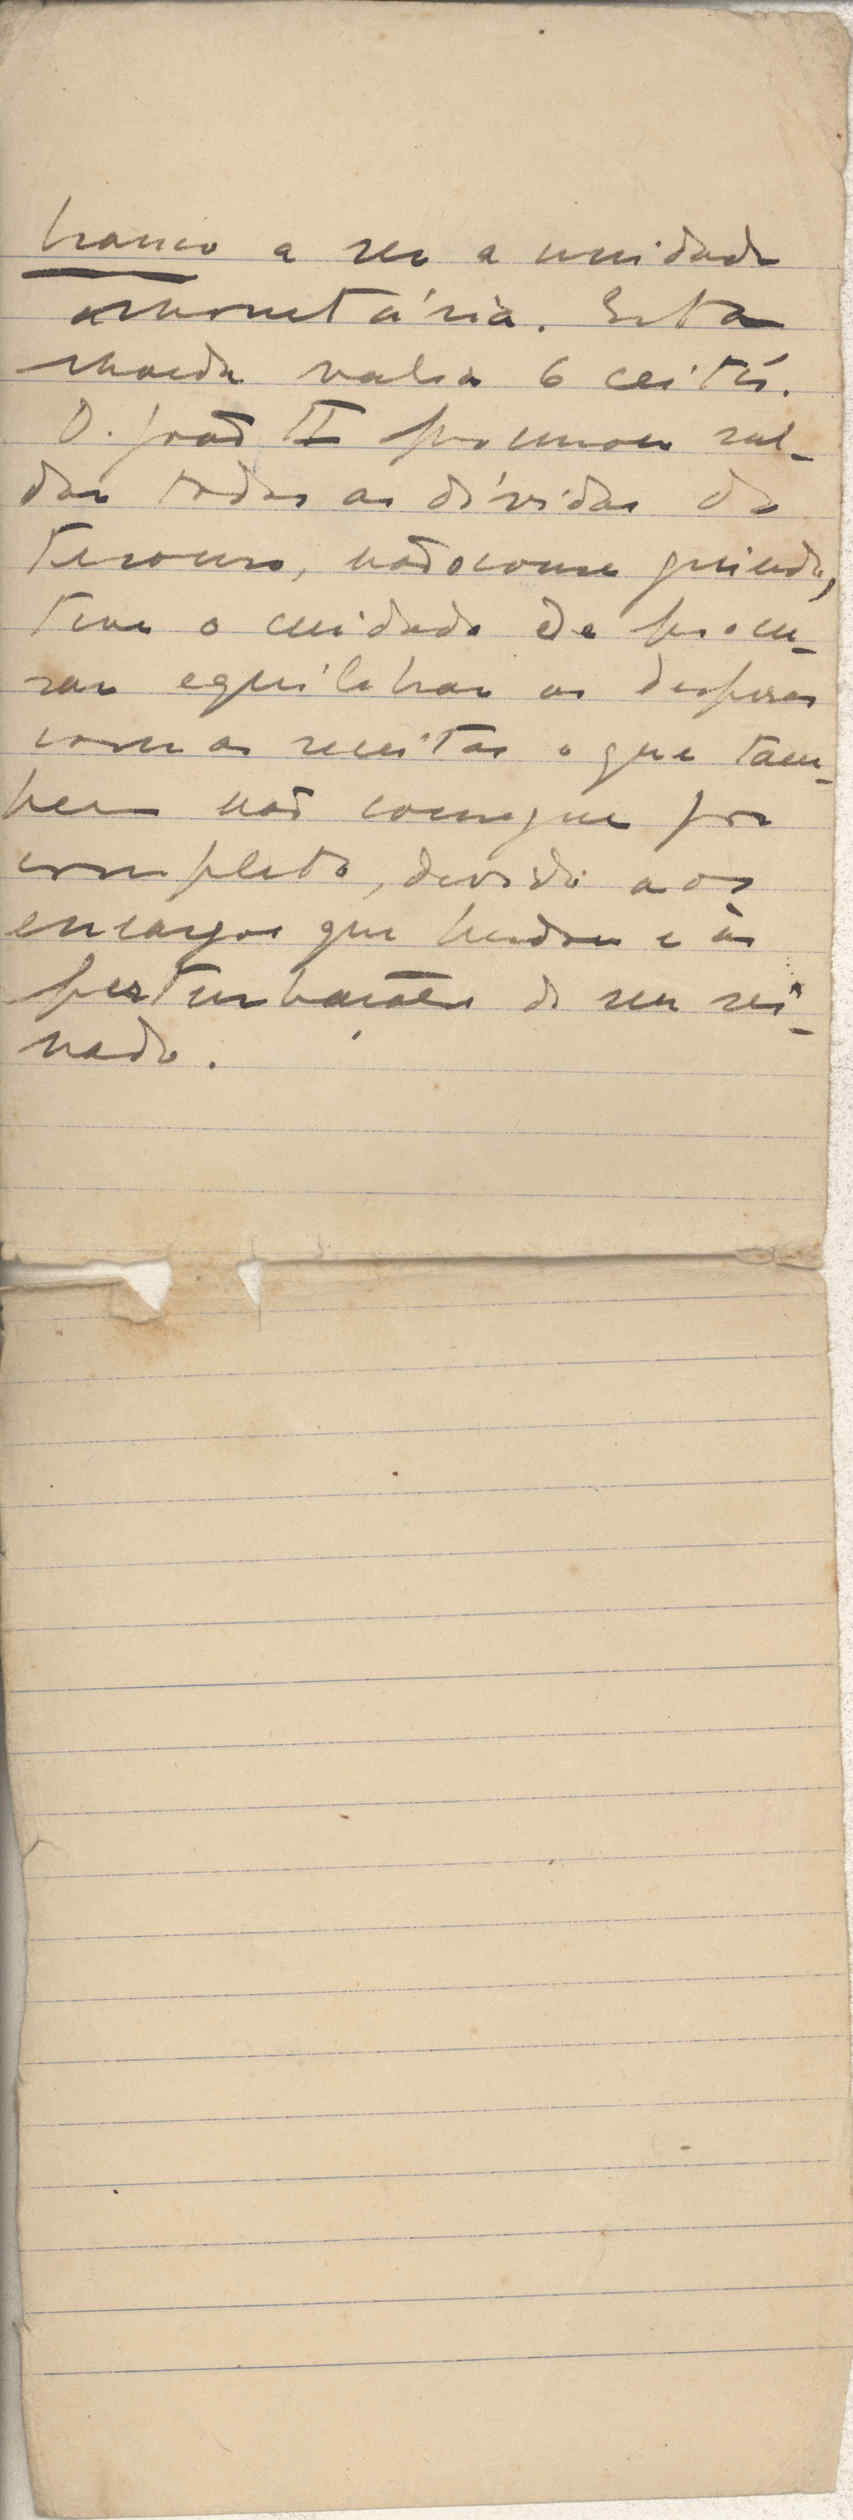 branco a ser a unidade
monetária. Esta
moeda valia 6 ceitís.
D. João II procurou sal-
dar todas as dívidas do
tesouro, não o conseguindo,
teve o cuidado de procu-
rar equilibrar as despesas
com as receitas o que tam-
bem não consegue por
completo, devido aos
encargos que herdou e às
perturbações do seu rei-
nado.